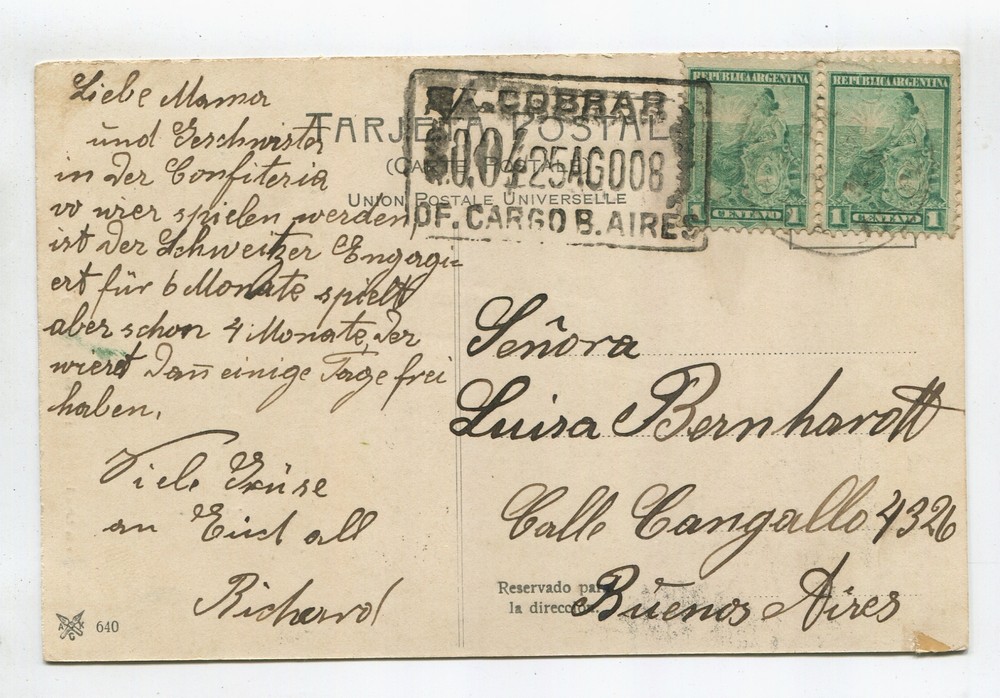 Liebe Mama
und Geschwister
in der Confiteria
wo wier spielen werden
ist der Schweitzer Engagi=
ert für 6 Monate spielt
aber schon 4 Monate, der
wierd dañ einige Tage frei
haben.
Viele Grüse
an Euch all
Richard
640
TARJETA POSTAL
(CARTE POSTALE)
UNION POSTALE UNIVERSELLE
A COBRAR
$0.04 25AGO08
OF. CARGO B. AIRES
REPÚBLICA ARGENTINA
1 CENTAVO 1
REPÚBLICA ARGENTINA
1 CENTAVO 1
Señora
Luisa Bernhardt
Calle Cangallo 4326
Buenos Aires
Reservado para
la dirección.